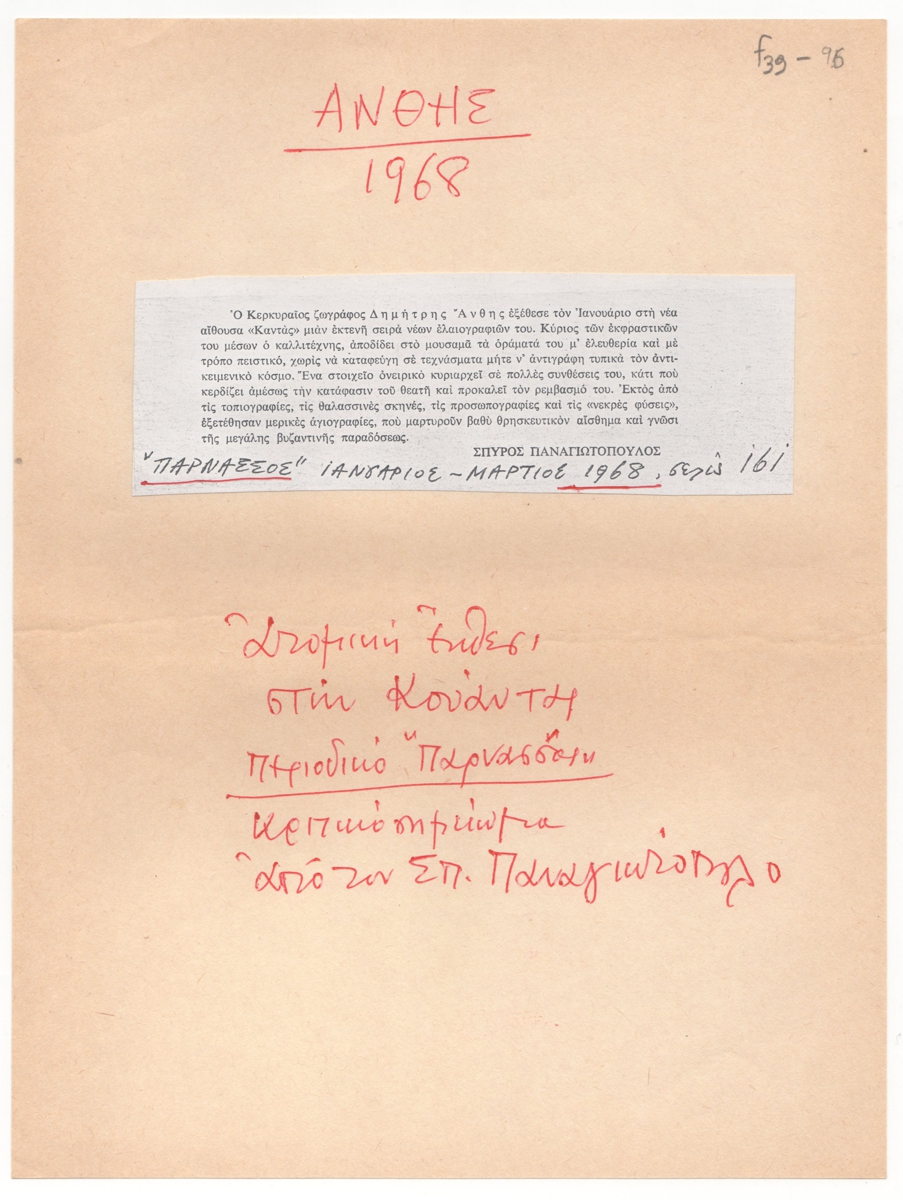 f39 - 95
ΑΝΘΗΣ
1968
Ὁ Κερκυραῖος ζωγράφος Δημήτρης Ἄνθης ἐξέθεσε τὸν Ἰανουάριο στὴ νέα
αἴθουσα «Καντάς» μιὰν ἐκτενῆ σειρὰ νέων ἐλαιογραφιῶν του. Κύριος τῶν ἐκφραστικῶν
του μέσων ὁ καλλιτέχνης, ἀποδίδει στὸ μουσαμᾶ τὰ ὁράματά του μ' ἐλευθερία καὶ μὲ
τρόπο πειστικό, χωρὶς νὰ καταφεύγη σὲ τεχνάσματα μήτε ν' ἀντιγράφη τυπικὰ τὸν ἀντι-
κειμενικὸ κόσμο. Ἕνα στοιχεῖο ὀνειρικὸ κυριαρχεῖ σὲ πολλὲς συνθέσεις του, κάτι ποὺ
κερδίζει ἀμέσως τὴν κατάφασιν τοῦ θεατῆ καὶ προκαλεῖ τὸν ρεμβασμό του. Ἐκτὸς ἀπὸ
τὶς τοπιογραφίες, τὶς θαλασσινὲς σκηνές, τὶς προσωπογραφίες καὶ τὶς «νεκρὲς φύσεις»,
ἐξετέθησαν μερικὲς ἁγιογραφίες, ποὺ μαρτυροῦν βαθὺ θρησκευτικὸν αἴσθημα καὶ γνῶσι
τῆς μεγάλης βυζαντινῆς παραδόσεως.
ΣΠΥΡΟΣ ΠΑΝΑΓΙΩΤΟΠΟΥΛΟΣ
"ΠΑΡΝΑΣΣΟΣ" ΙΑΝΟΥΑΡΙΟΣ - ΜΑΡΤΙΟΣ 1968, σελὶς 161
Ἀτομικὴ Ἔκθεσι
στὴν Κουάντας
περιοδικό "Παρνασσός"
κριτικό σημείωμα
ἀπό τον Σπ. Παναγιωτόπουλο